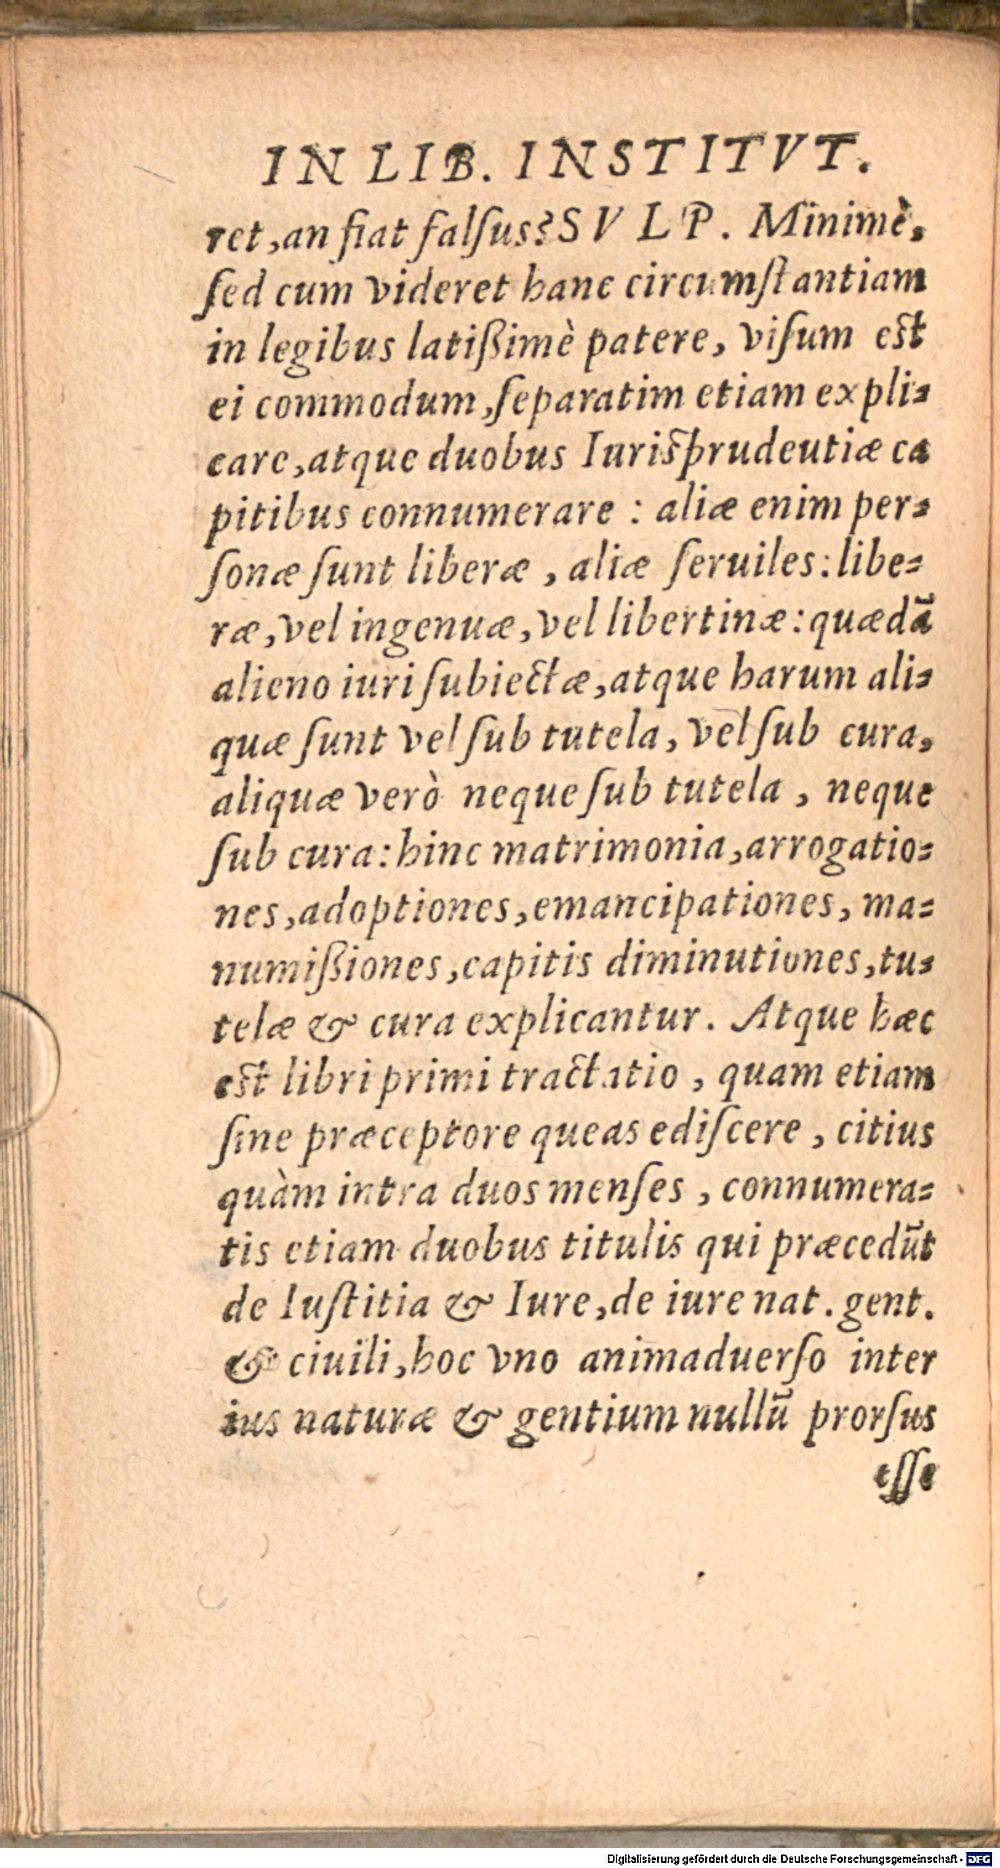 IN LIB. INSTITVT.
ret, an fiat falſus? SVLP. Minimè,
ſed cum videret hanc circumſtantiam
in legibus latißimè patere, viſum eſt
ei commodum, ſeparatim etiam expli-
care, atque duobus Iuriſprudeutiæ ca
pitibus connumerare : aliæ enim per-
ſonæ ſunt liberæ , aliæ ſeruiles: libe-
ræ, vel ingenuæ, vel libertinæ: quædã
alieno iuri ſubiectæ, atque harum ali-
quæ ſunt vel ſub tutela, vel ſub cura,
aliquæ verò neque ſub tutela , neque
ſub cura: hinc matrimonia, arrogatio-
nes, adoptiones, emancipationes, ma-
numißiones, capitis diminutiones, tu-
telæ & cura explicantur. Atque hæc
eſt libri primi tractatio , quam etiam
ſine præceptore queas ediſcere , citius
quàm intra duos menſes , connumera-
tis etiam duobus titulis qui præcedũt
de Iuſtitia & Iure, de iure nat. gent.
& ciuili, hoc vno animaduerſo inter
ius naturæ & gentium nullũ prorſus
eſſe
Digitalisierung gefördert durch die Deutsche Forschungsgemeinschaft - DFG